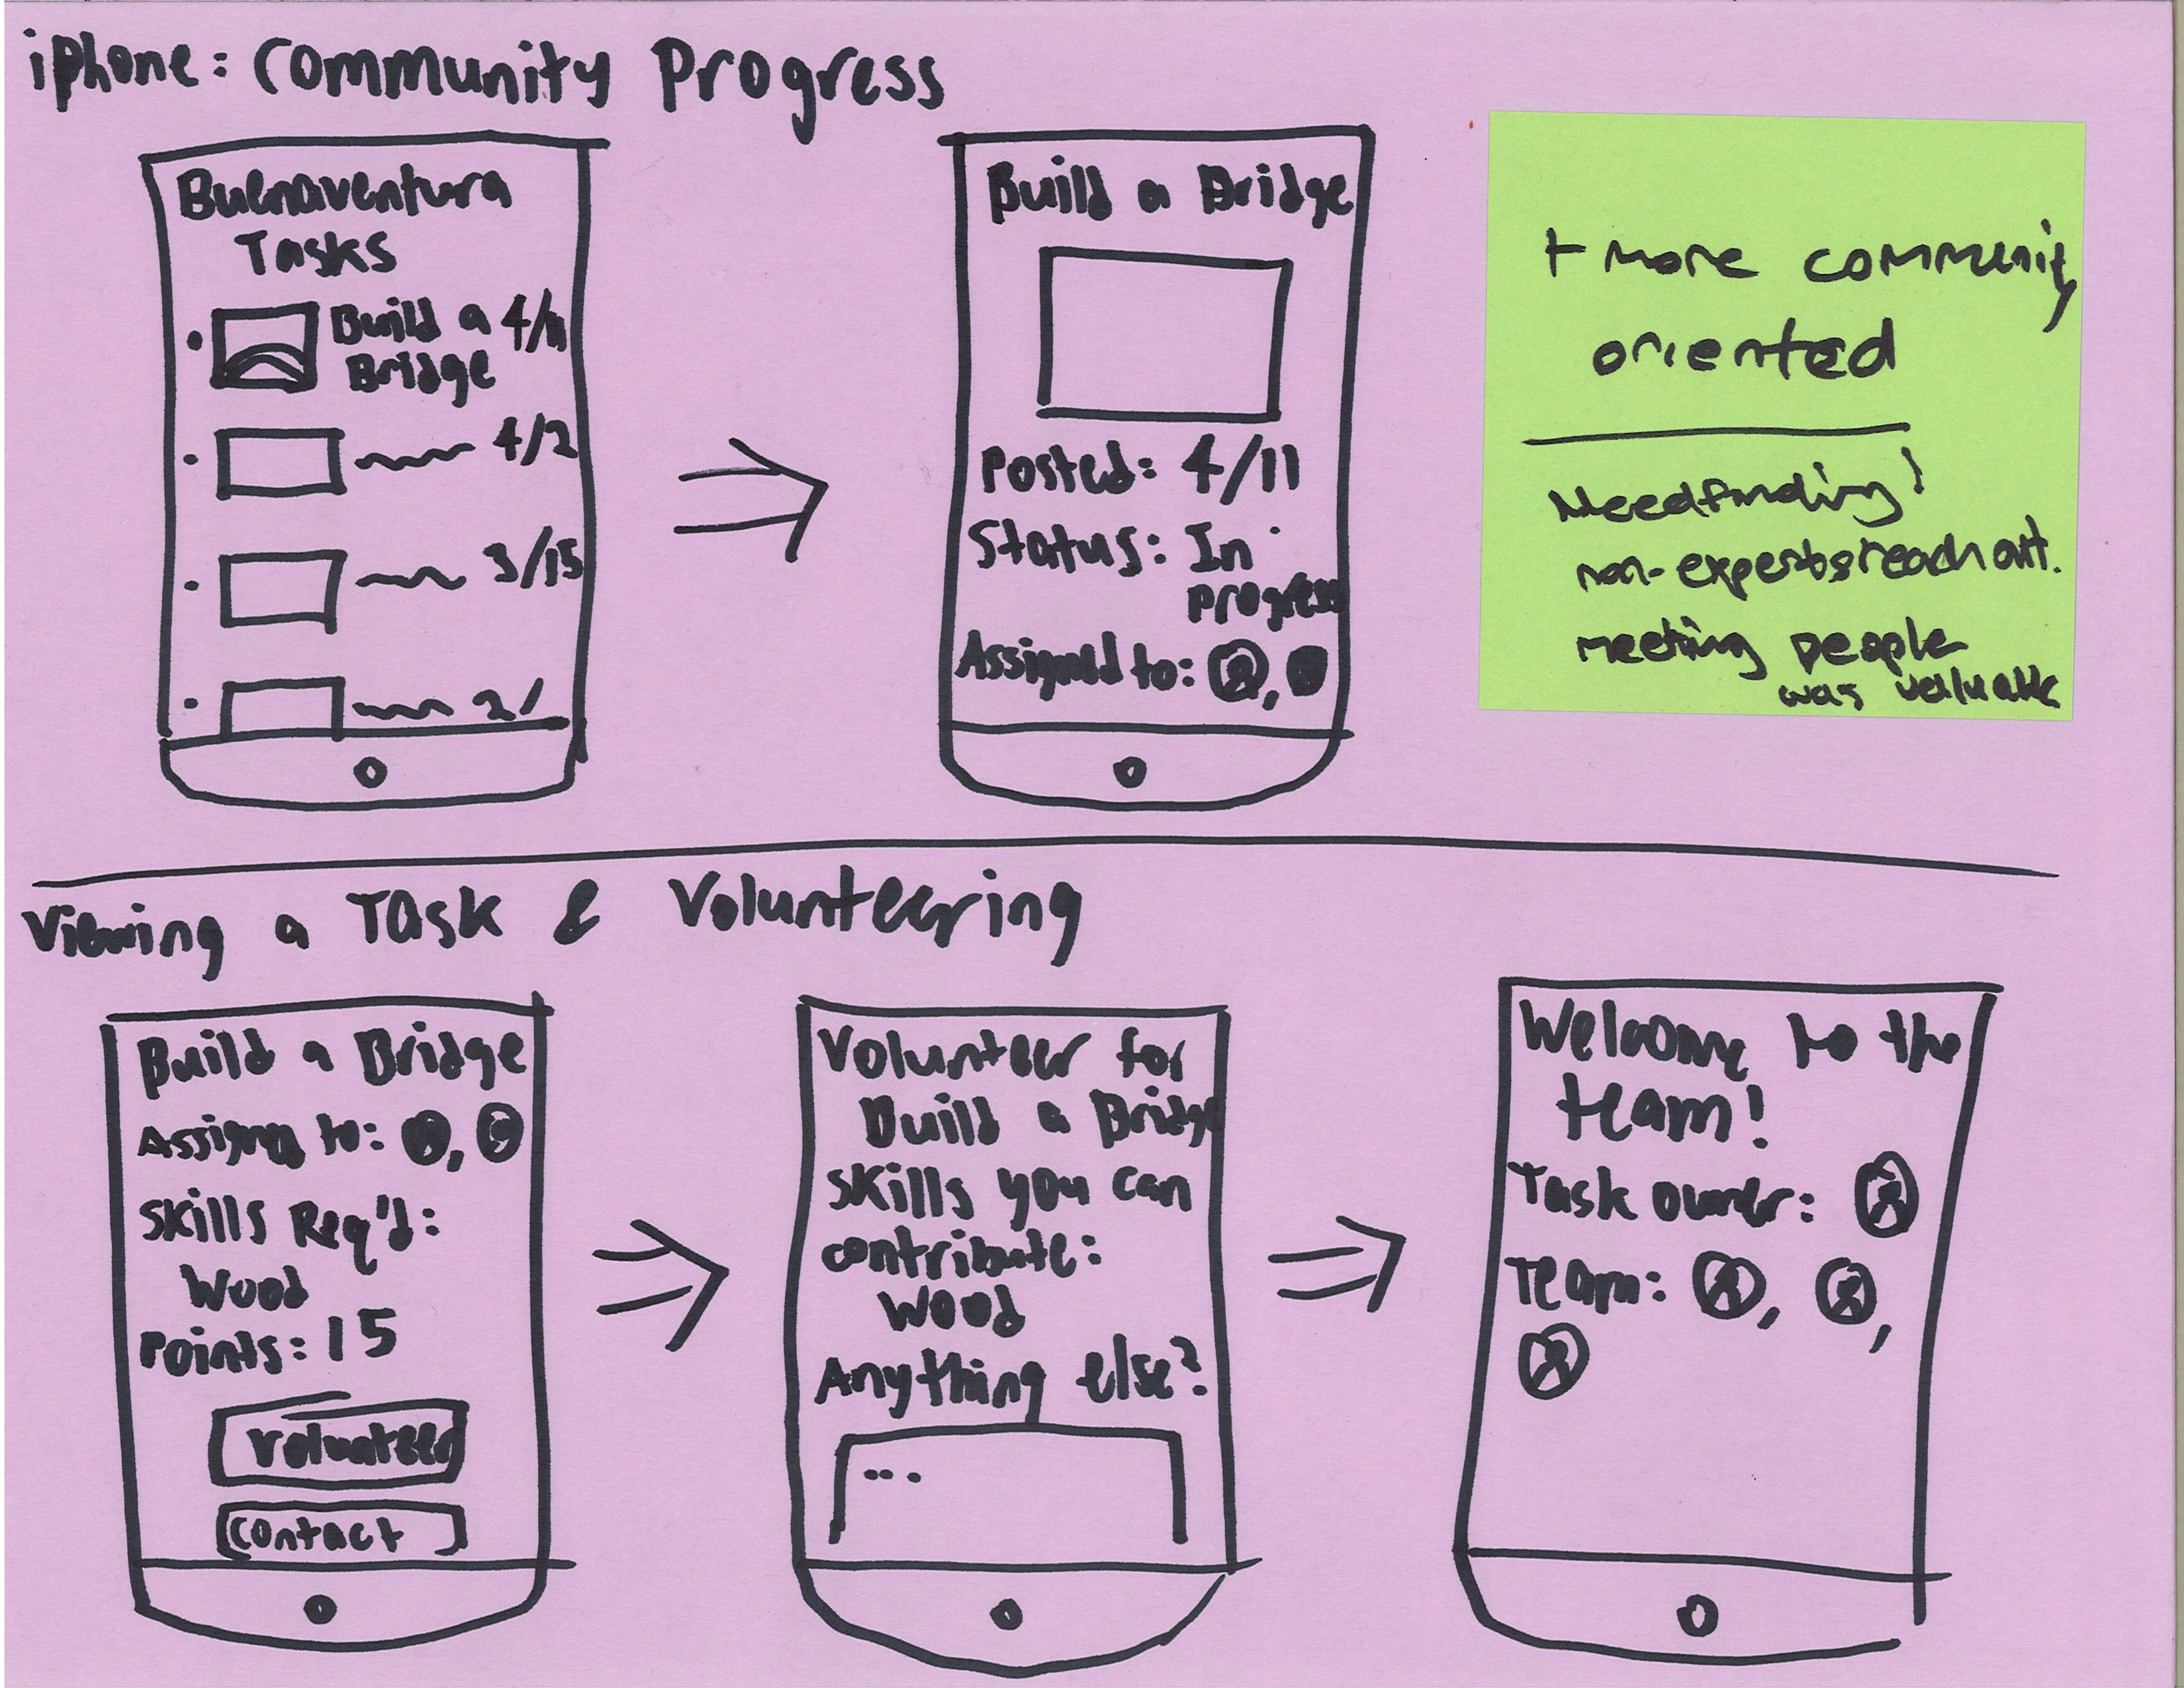 iphone: Community Progress
Buenaventura
Tasks
Build a 4/11
Bridge
4/2
3/15
2/
Build a Bridge
Posted: 4/11
Status: In
progress
Assigned to:
+ more community
oriented
Needfinding:
non-experts reach out.
meeting people
was valuable
Viewing a Task & Volunteering
Build a Bridge
Assigned to:
Skills Req'd:
Wood
Points: 15
Volunteer
Contact
Volunteer for
Build a Bridge
Skills you can
contribute:
Wood
Anything else?
...
Welcome to the
team!
Task owner:
Team: